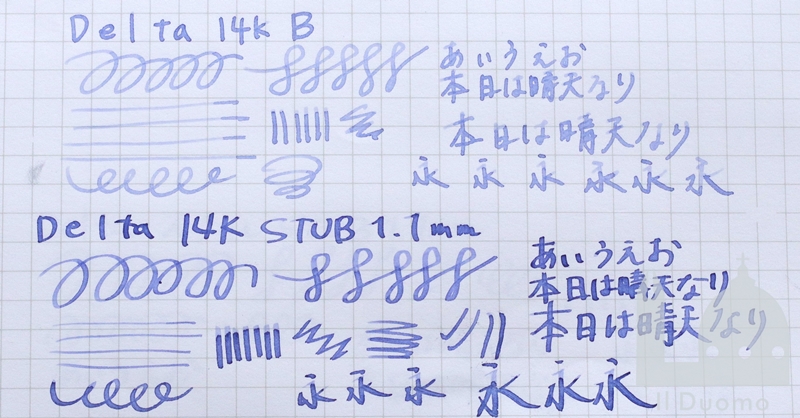 Delta 14K B
あいうえお
本日は晴天なり
本日は晴天なり
永 永 永 永 永 永
Delta 14K STUB 1.1mm
あいうえお
本日は晴天なり
本日は晴天なり
永 永 永 永 永 永
Il Duomo